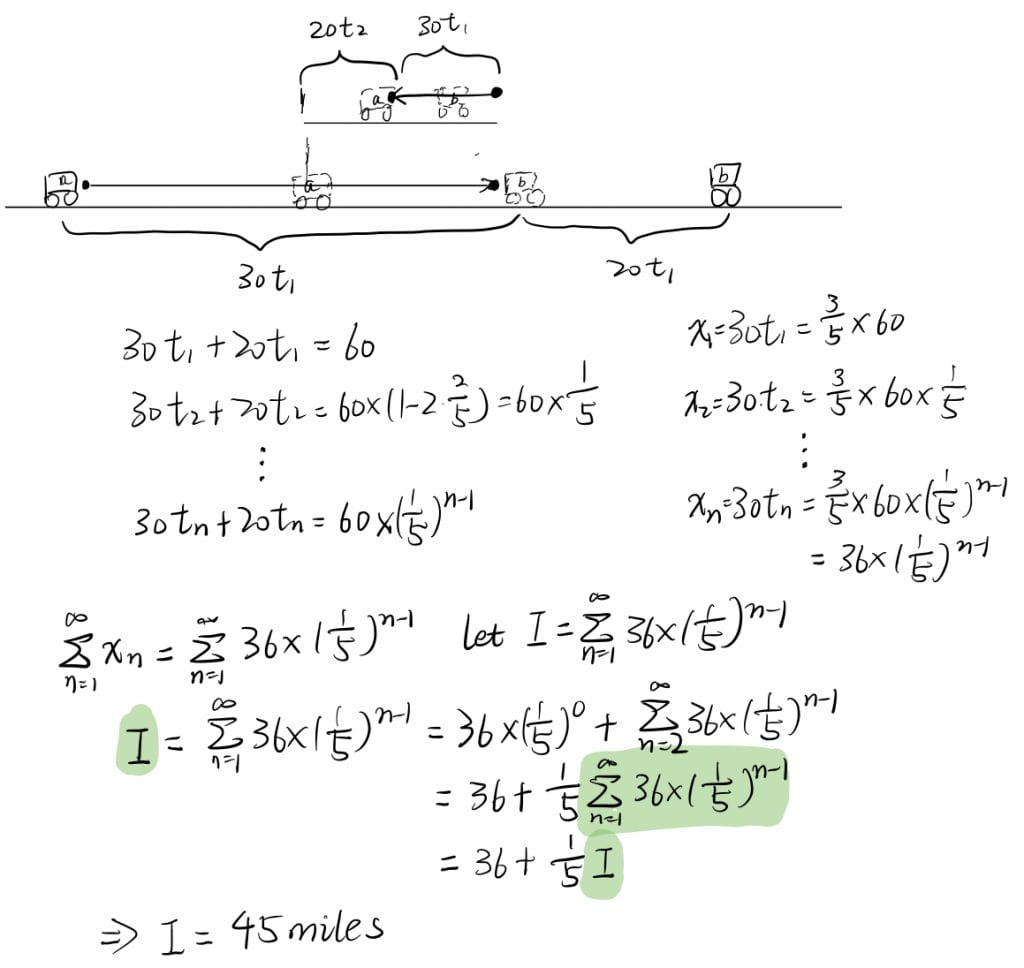 20t₂ 30t₁
a b
a a b b
30t₁ 20t₁
30t₁+20t₁=60
x₁=30t₁=3/5×60
30t₂+20t₂=60×(1-2·2/5)=60×1/5
x₂=30t₂=3/5×60×1/5
⋮ ⋮
30tₙ+20tₙ=60×(1/5)ⁿ⁻¹
xₙ=30tₙ=3/5×60×(1/5)ⁿ⁻¹
=36×(1/5)ⁿ⁻¹
∑_{n=1}^{∞} xₙ = ∑_{n=1}^{∞} 36×(1/5)ⁿ⁻¹ let I=∑_{n=1}^{∞} 36×(1/5)ⁿ⁻¹
I = ∑_{n=1}^{∞} 36×(1/5)ⁿ⁻¹ = 36×(1/5)⁰ + ∑_{n=2}^{∞} 36×(1/5)ⁿ⁻¹
= 36+ 1/5 ∑_{n=1}^{∞} 36×(1/5)ⁿ⁻¹
= 36+ 1/5 I
⇒ I = 45 miles